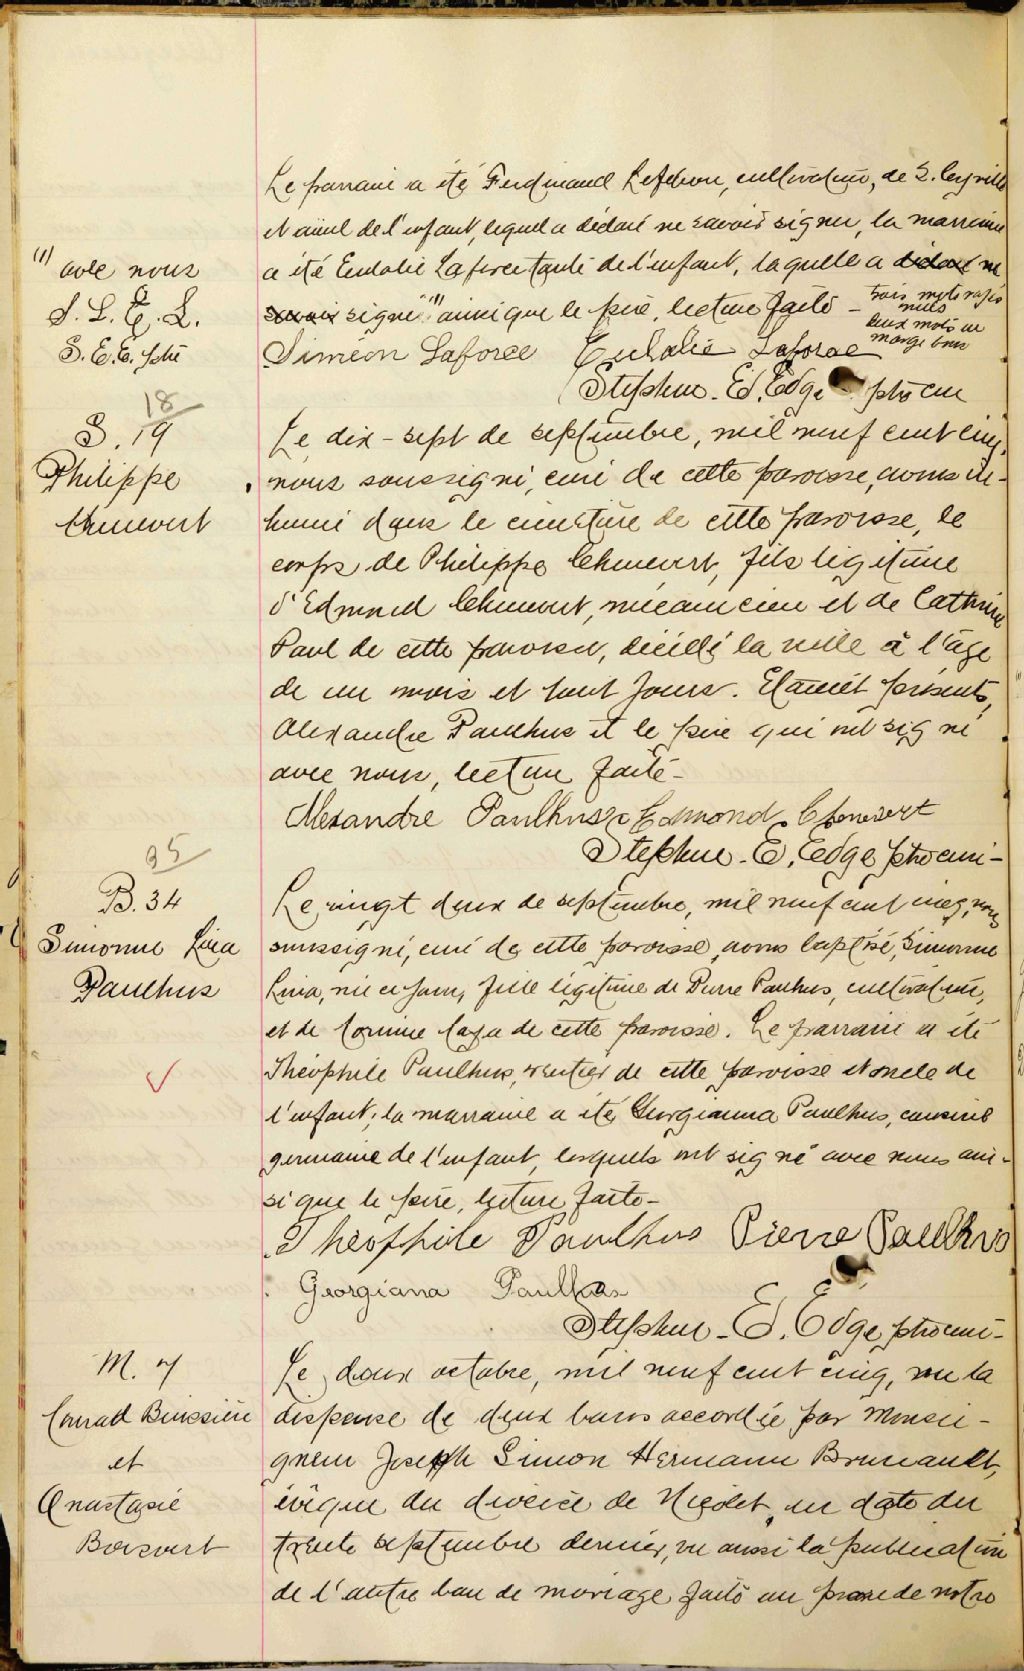 Le parrain a été Ferdinand Lefebvre, cultivateur, de
et aïeul de l'enfant, lequel a déclaré ne savoir signer, la marraine
(1) avec nous
a été Eulalie Laforce tante de l'enfant, laquelle a déclaré ne
S. L. E. L.
savoir signé "(1)" ainsi que le père, lecture faite - trois mots rayés
nuls
deux mots en
marge bons
S. E. E. ptre
Siméon Laforce Eulalie Laforce
Stephen. Ed. Edge ptre curé
18
S. 19
Philippe
Chenevert
Le dix-sept de septembre, mil neuf cent cinq,
nous soussigné, curé de cette paroisse, avons in-
humé dans le cimetière de cette paroisse, le
corps de Philippe Chenevert, fils légitime
d'Edmond Chenevert, mécanicien et de Cathrine
Paul de cette paroisse, décédé la veille à l'âge
de un mois et huit jours. Étaient présents,
Alexandre Paulhus et le père qui ont signé
avec nous, lecture faite -
Alexandre Paulhus Edmond Chenevert
Stephen. E. Edge ptre curé -
35
B. 34
Simonne Livia
Paulhus
Le vingt deux de septembre, mil neuf cent cinq, nous
soussigné, curé de cette paroisse, avons baptisé, Simonne
Livia, née ce jour, fille légitime de Pierre Paulhus, cultivateur,
et de de cette paroisse. Le parrain a été
Théophile Paulhus, rentier de cette paroisse et oncle de
l'enfant; la marraine a été Georgianna Paulhus, cousine
germaine de l'enfant, lesquels ont signé avec nous ain-
si que le père, lecture faite -
Théophile Paulhus Pierre Paulhus
Georgiana Paulhus
Stephen. Ed. Edge ptre curé -
M. 7
Conrad Buissière
et
Anastasie
Boisvert
Le deux octobre, mil neuf cent cinq, vu la
dispense de deux bans accordée par Monsei-
gneur Joseph Simon Hermann Brunault,
évêque du diocèse de Nicolet, en date du
trente septembre dernier, vu aussi la publication
de l'autre ban de mariage, faite au prone de notre